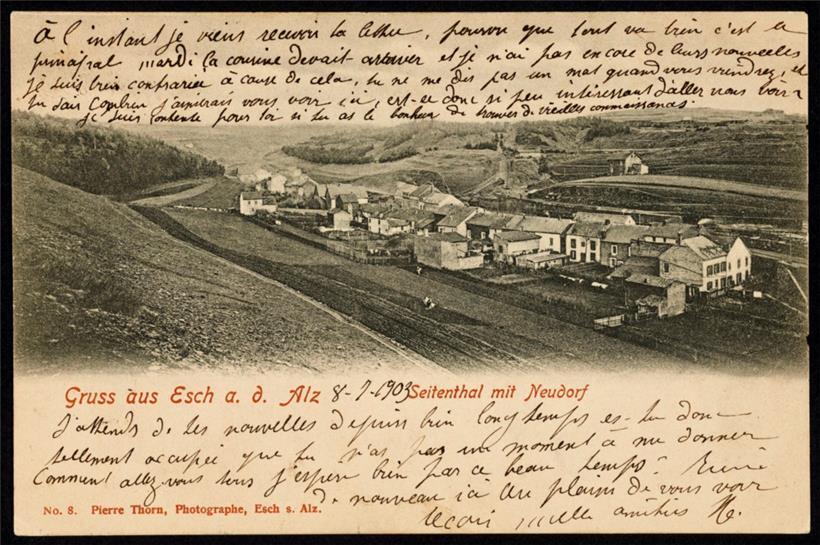 à l'instant je viens recevoir ta lettre, pourvu que tout va bien c'est le
principal mardi la cousine devait arriver et je n'ai pas encore de leurs nouvelles
je suis bien contrariée à cause de cela, tu ne me dis pas un mot quand vous viendrez, et
tu sais combien j'aimerais vous voir ici, est-ce donc si peu intéressant d'aller nous voir
je suis contente pour toi si tu as le bonheur de trouver de vieilles connaissances.
Gruss aus Esch a. d. Alz 8-7-1903 Seitenthal mit Neudorf
J'attends de tes nouvelles depuis bien longtemps es-tu donc
tellement occupée que tu n'as pas un moment à me donner
Comment allez-vous tous j'espère bien par ce beau temps?
de nouveau ici plaisir de vous voir
No. 8. Pierre Thorn, Photographe, Esch s. Alz.
reçois mille amitiés